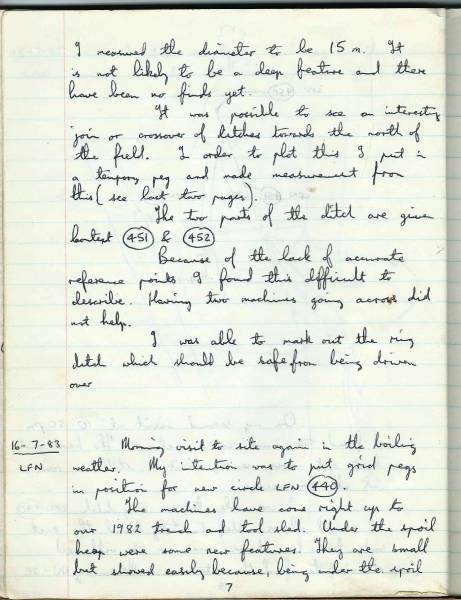 I measured the diameter to be 15 m. It
is not likely to be a deep feature and there
have been no finds yet.
It was possible to see an interesting
join or crossover of ditches towards the north of
the field. In order to plot this I put in
a temporary peg and made measurement from
this (see last two pages).
The two parts of the ditch are given
Context 451 & 452
Because of the lack of accurate
reference points I found this difficult to
describe. Having two machines going across did
not help.
I was able to mark out the ring
ditch which should be safe from being driven
over
16-7-83 Morning visit to site again in the boiling
LFN weather. My intention was to put grid pegs
in position for new circle LFN 440
The machines have come right up to
our 1982 trench and tool shed. Under the spoil
heap were some new features. They are small
but showed easily because being under the spoil
7